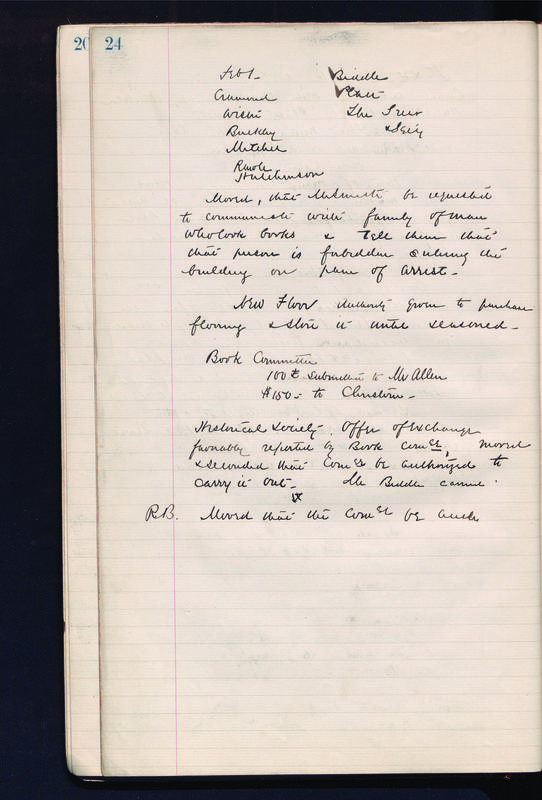 20 24
Feb 1 - Biddle
Cramond
Wister The Treas
Buckley & Secy
Mitchel
Rawle
Hutchinson
Moved, that be requested
to communicate with family of man
who took books & tell them that
that person is forbidden entering the
building on pain of arrest -
New Floor Authority given to purchase
flooring & store it until seasoned -
Book Committee
100 submitted to Mr Allen
$150 - to Christern -
Historical Society. Offer of exchange
favorably reported by Book Comee, moved
& seconded that Comee be authorized to
carry it out - Mr Biddle
R.B. Moved that the Comee be auth